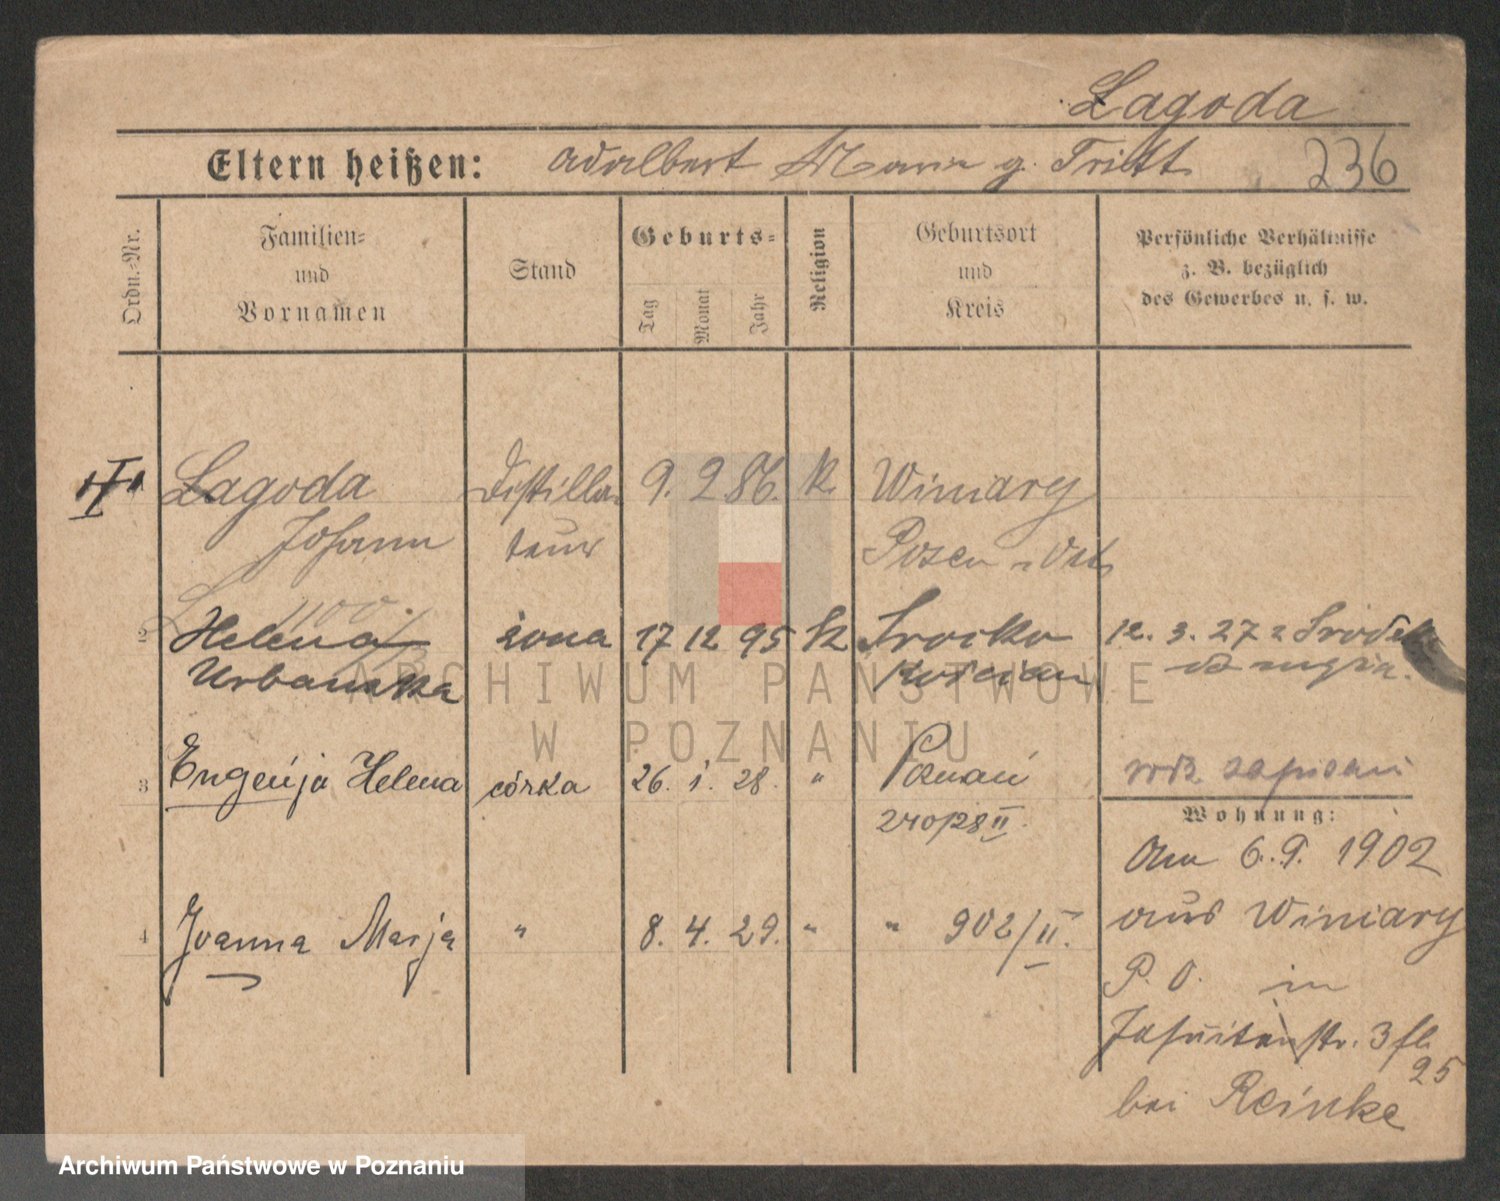 Lagoda
Eltern heißen: Adalbert Maria g. Tritt 236
Ordn.-Nr.
Familien-
und
Vornamen
Stand
Geburts-
Tag
Monat
Jahr
Religion
Geburtsort
und
Kreis
Persönliche Verhältnisse
z. B. bezüglich
des Gewerbes u. s. w.
Lagoda Distilla- 9. 2 86. k. Winiary
Johann teur Posen Ost
2 Helena żona 17 12 95 k Srocko 12. 3. 27 z
Urbańska Kościan
3 Eugenja Helena córka 26. 1. 28. " Poznań
240/28 II
Wohnung:
Am 6.9. 1902
aus Winiary
4 Joanna Marja " 8. 4. 29. " " 902/II.
P. O. in
Jesuitenstr. 3 fl.
25
bei Reinke
ARCHIWUM PAŃSTWOWE
W POZNANIU
Archiwum Państwowe w Poznaniu